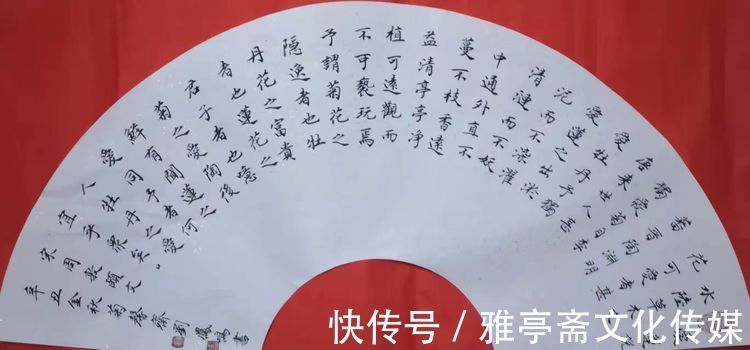 水陸草木之
花可愛者甚
蕃晉陶淵明
獨愛菊自李
唐來世人甚
愛牡丹予獨
愛蓮之出淤
泥而不染濯
清漣而不妖
中通外直不
蔓不枝香遠
益清亭亭淨
植可遠觀而
不可褻玩焉
予謂菊花之
隱逸者也牡
丹花之富貴
者也蓮花之
君子者也噫
菊之愛陶後
鮮有聞蓮之
愛同予者何
人牡丹之愛
宜乎衆矣
宋周敦頤文
辛丑金秋菊馨齋劉書
快传号 / 雅亭斋文化传媒